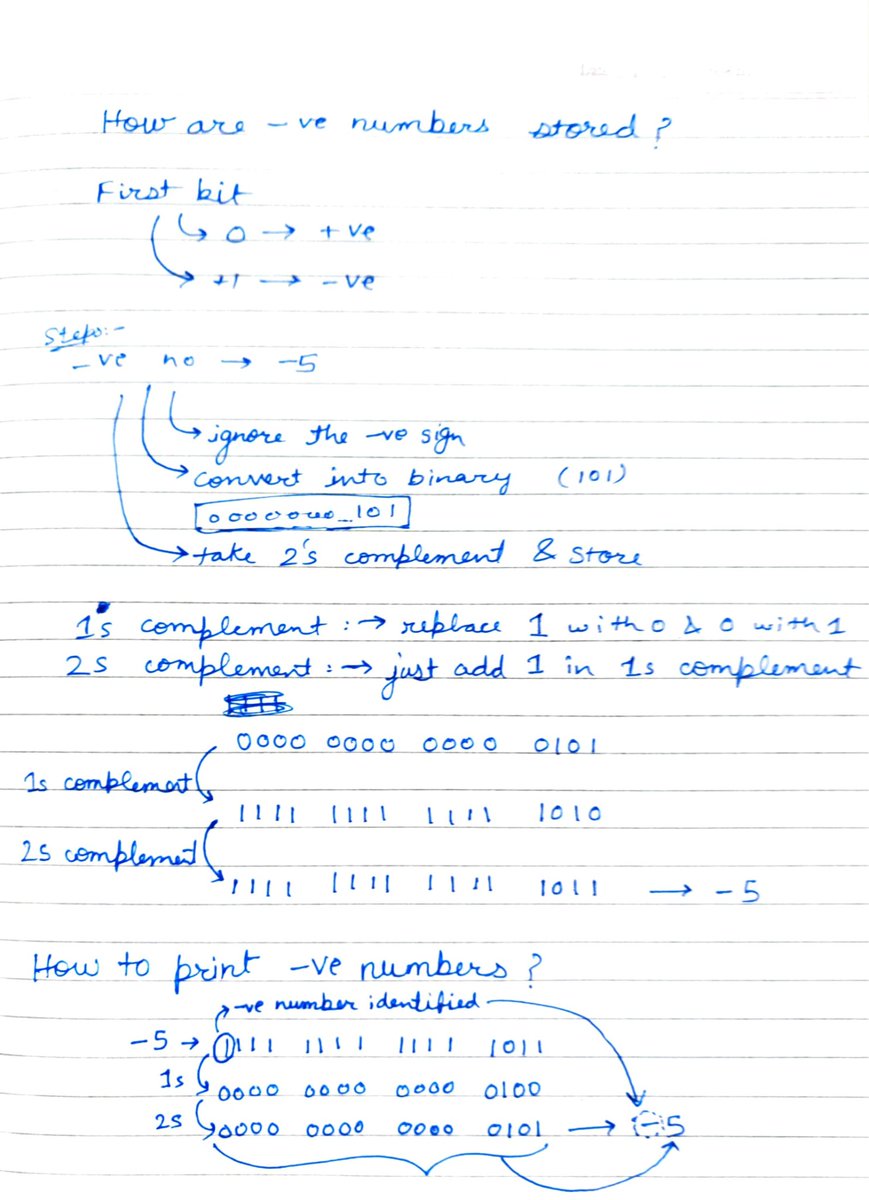 How are -ve numbers stored?
First bit
0 → +ve
+1 → -ve
Steps:-
-ve no → -5
ignore the -ve sign
convert into binary (101)
0000000_101
take 2's complement & store
1's complement :→ replace 1 with 0 & 0 with 1
2s complement :→ just add 1 in 1s complement
0000 0000 0000 0101
1s complement
1111 1111 1111 1010
2s complement
1111 1111 1111 1011 → -5
How to print -ve numbers?
-ve number identified
-5 → 1111 1111 1111 1011
1s
0000 0000 0000 0100
2s
0000 0000 0000 0101 → -5